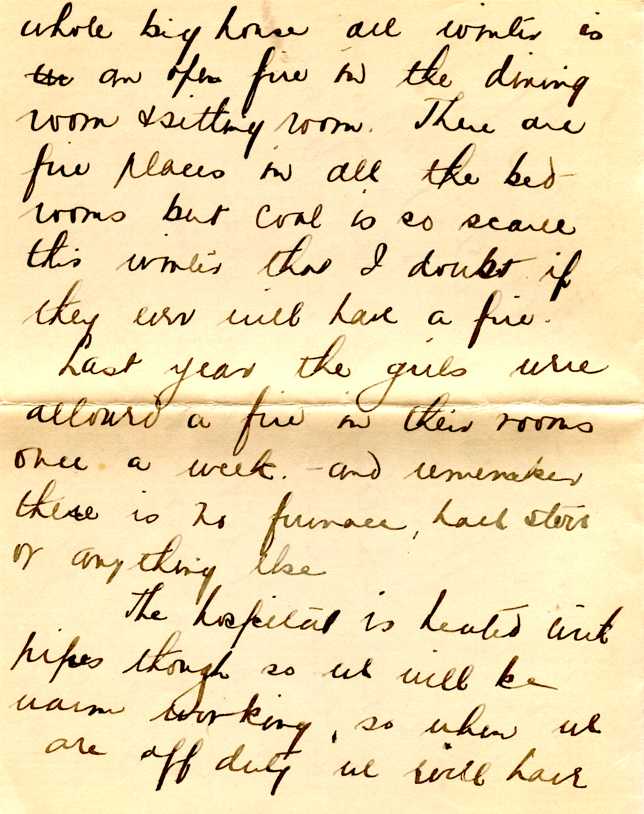 whole big house all winter is
in an open fire in the dining
room & sitting room. There are
fire places in all the bed
rooms but coal is so scarce
this winter that I doubt if
they ever will have a fire.
Last year the girls were
allowed a fire in their rooms
once a week. - and remember
there is no furnace, hall stove
or anything else
The hospital is heated with
pipes though so we will be
warm working, so when we
are off duty we will have